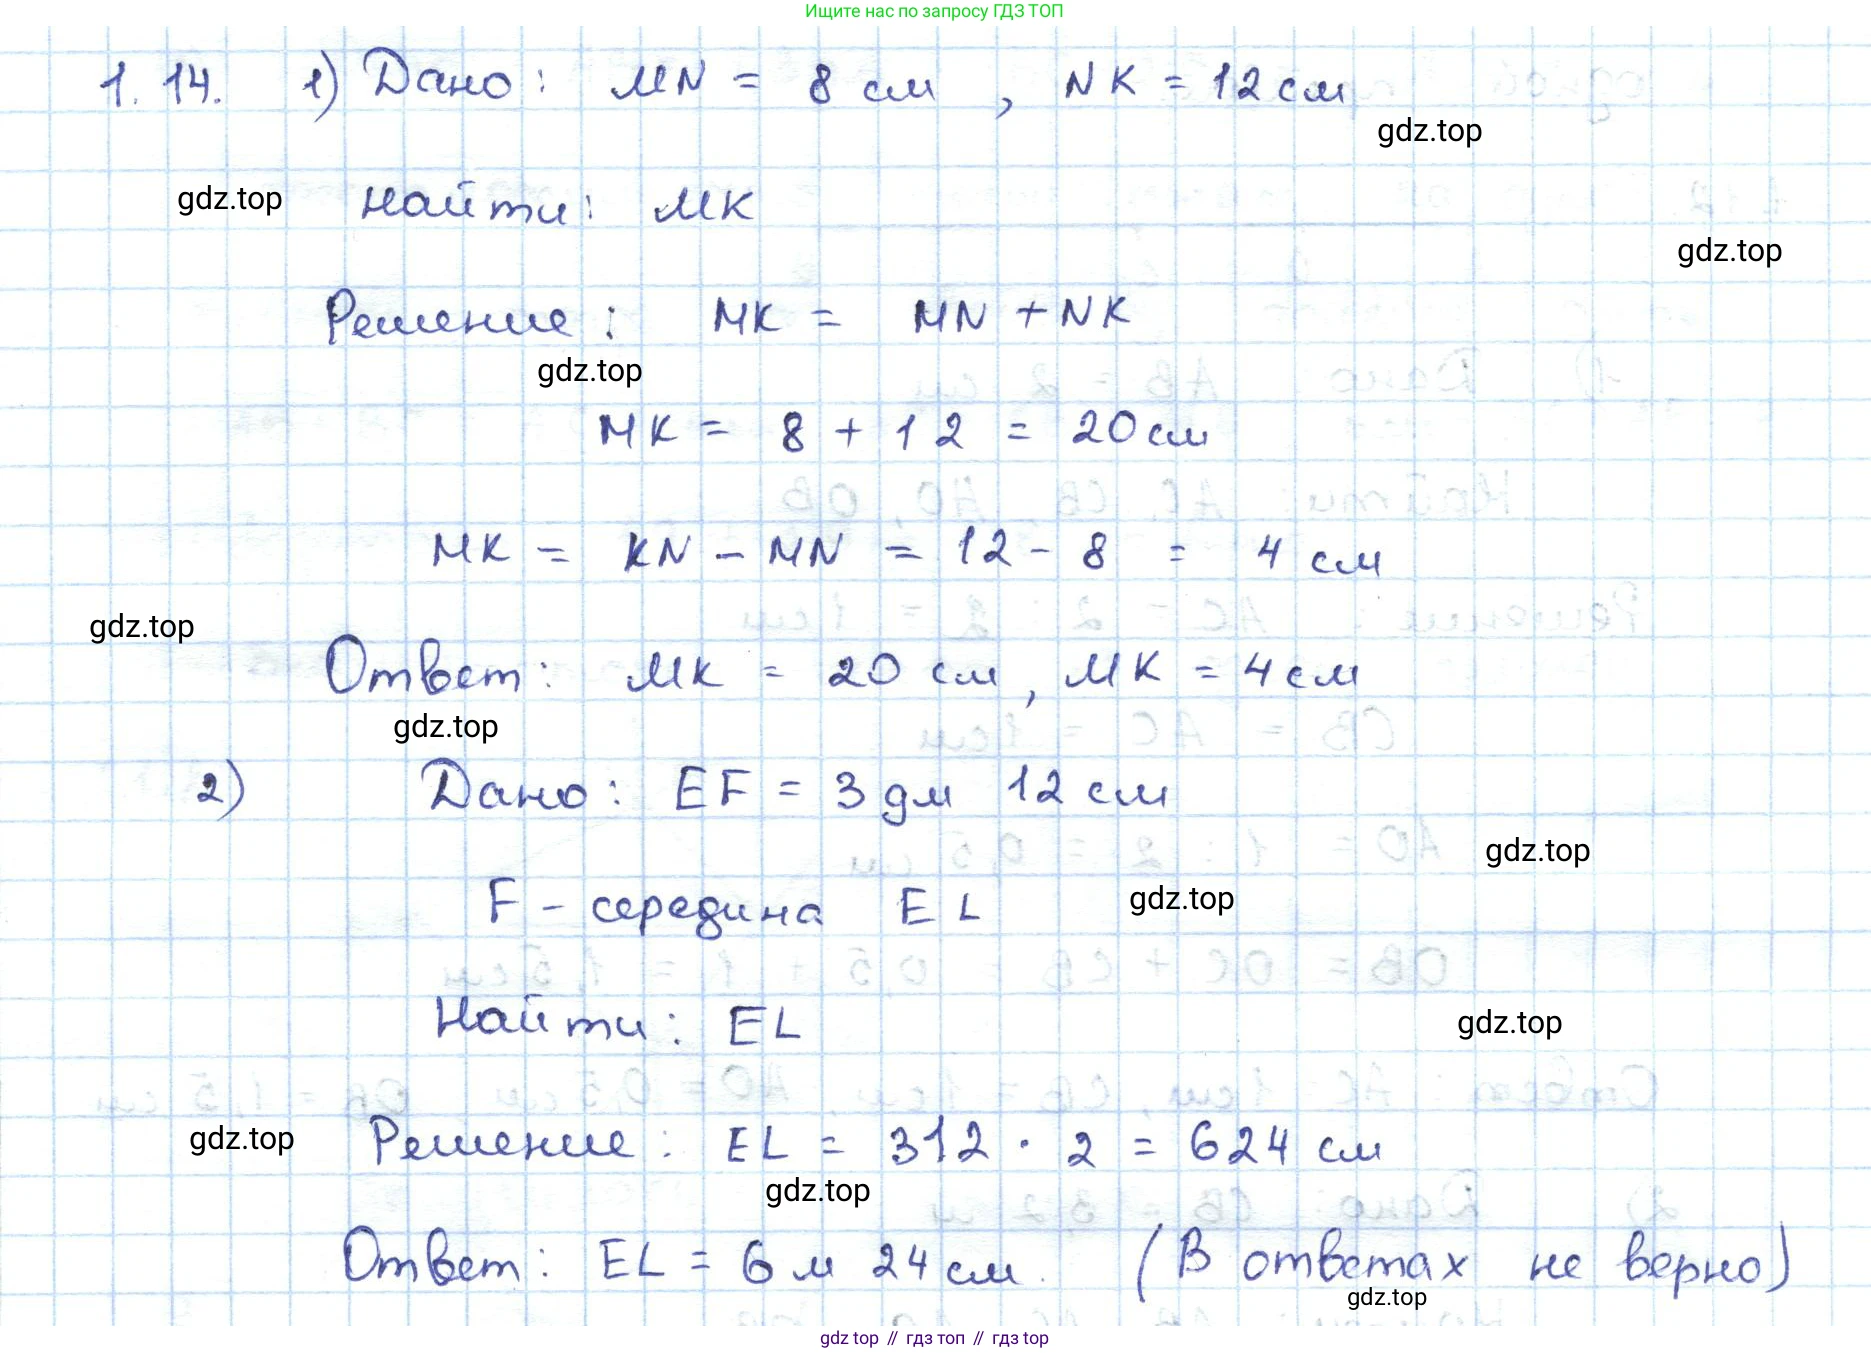 Ищите нас по запросу ГДЗ ТОП
1.14. 1) Дано: MN = 8 см, NK = 12 см
gdz.top
gdz.top
Найти: MK
gdz.top
Решение: MK = MN + NK
gdz.top
MK = 8 + 12 = 20 см
MK = KN - MN = 12 - 8 = 4 см
gdz.top
Ответ: MK = 20 см, MK = 4 см
gdz.top
2) Дано: EF = 3 дм 12 см
gdz.top
F - середина EL
gdz.top
Найти: EL
gdz.top
gdz.top
Решение: EL = 312 · 2 = 624 см
gdz.top
Ответ: EL = 6 м 24 см. (В ответах не верно)
gdz.top
gdz top // гдз топ // гдз top